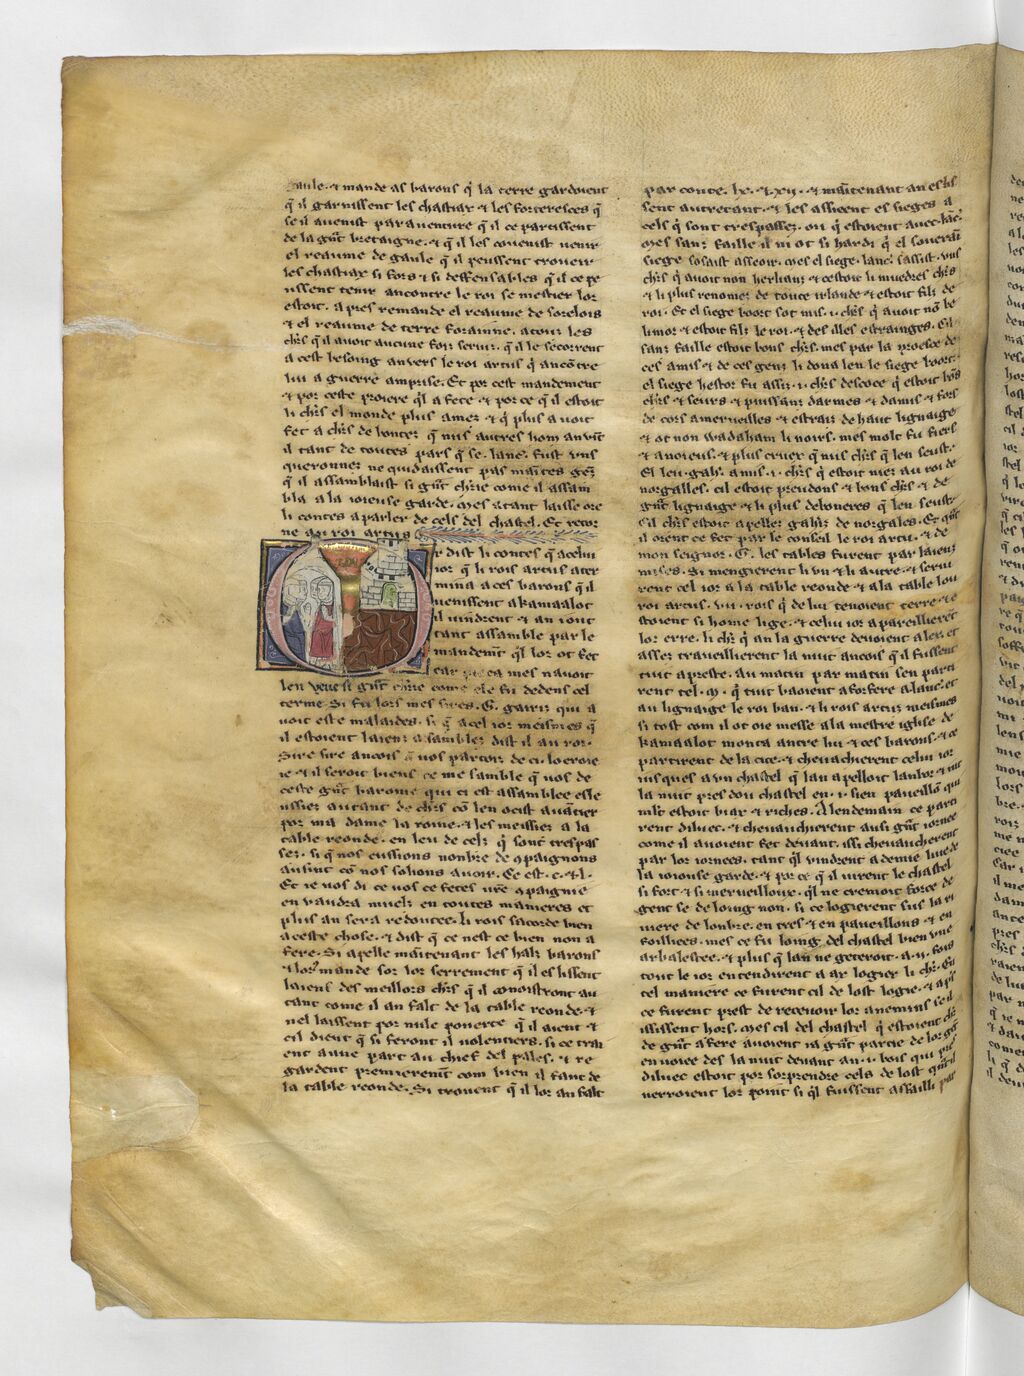 aule. ⁊ mande as barons q̄ la terre gardoient
q̄ il garnissent les chastiax ⁊ les forteresces q̄
se il auenist par auenture q̄ il ce partissent
de la gn̄t bretaigne. ⁊ q̄ il les couenist uenir
el reaume de gaule q̄ il peussent trouer
les chastiax si fors ⁊ si deffensables q̄ il ce pe
ussent tenir ancontre le roi se mestier lor
estoit. apres remande el reaume de sorelois
⁊ el reaume de terre forainne. a touz les
chr̄s q̄ il auoit aucune foiz serui. q̄ il le secorrent
a cest besoing anuers le roi artus q̄ ancōtre
lui a guerre amprise. Et por cest mandement
⁊ por ceste proiere q̄l a fete ⁊ por ce q̄ il estoit
li chr̄s el monde plus amez ⁊ q̄ plus auoit
fet a chr̄s de bontez q̄ nus autres hom an vīt
il tant de toutes pars q̄ se. lanc̄. fust uns
rois queronnez ne quidaissent pas maītes genz
q̄ il assamblaist si gn̄t chr̄ie come il assam
bla a la ioieuse garde. Mes atant laisse ore
li contes a parler de cels del chastel. Et retor
ne au roi artus
r dist li contes q̄ a celui
ior q̄ li rois artus ater
mina a ces barons q̄ il
uenissent a kamaalot
il uindrent ⁊ an iont
tant assamble par le
mandemēt q̄l lor ot fet
car pieca mes n auoit
len veu si gn̄t chr̄ie come ele fu dedens cel
terme. Si fu lors mes sires. G. gariz qui a
uoit este malaides. si q̄ a cel ior meismes q̄
il estoient laienz asamblez dist il au roi.
Sire fist ancois q̄ uos parcoiz de ci. loeroie
ie ⁊ il seroit biens ce me samble q̄ uos de
ceste gn̄t baronie qui ci est assamblee esle
ussiez autant de chr̄s cō len ocist auātier
por ma dame la roine. ⁊ les meissiez a la
table reonde. en leu de celz q̄ sont trespas
sez. si q̄ nos eussions nonbre de ꝯpaignons
ausint cō nos solions auoir. Ce est. c. ⁊. l.
Et ie uos di ce uos ce fetes ure ꝯpaignie
en vaudra muelz en toutes manieres et
plus an sera redoutee. li rois sacorde bien
a ceste chose. ⁊ dist q̄ ce nest ce bien non a
fere. Si apelle maītenant les halz barons
⁊ lor mande sor lor serrement q̄ il eslissent
laienz des meillors chr̄s q̄ il conoistront au
tant come il an falt de la table reonde. ⁊
nel laissent por nule pouerte q̄ il aient ⁊
cil dient q̄ si feront il uolentiers. si ce trai
ent a une part au chief del pales. ⁊ re
gardent premieremēt com bien il faut de
la table reonde. Si trouent q̄ il lor an falt
par conte. lx. ⁊. xii. ⁊ maītenant an eslis
sent autretant. ⁊ les assieent es sieges a
cels q̄ sont trespassez. ou q̄ estoient auec lāc̄.
Mes sanz faille il ni ot si hardi q̄ el souerai
siege sosaist asseoir. Mes el siege. lanc̄. sassist. uns
chr̄s q̄ auoit non helianz ⁊ cestoit li mieudres chr̄s
⁊ li plus renomez de toute irlande ⁊ estoit filz de
roi. Et el siege boort sot mis. i. chr̄s q̄ auoit nō be
linor ⁊ estoit filz le roi. ⁊ des illes estrainges. Cil
sanz faille estoit bons chr̄s. mes par la proesce de
ces amis ⁊ de ces genz li dona len le siege boort.
el siege hestor fu assiz. i. chr̄s descoce q̄ estoit bōs
chr̄s ⁊ seurs ⁊ puissanz darmes ⁊ damis ⁊ fors
de cors a merueilles ⁊ estraiz de haut lignaige
⁊ ot non wadahan li noirs. mes molt fu fiers
⁊ anoieus. ⁊ plus cruex q̄ nus chr̄s q̄ len seust.
El leu. gah̄. a mis. i. chr̄s q̄ estoit niez au roi de
norgalles. cil estoit preudons ⁊ bons chr̄s. ⁊ de
gn̄t lignaige ⁊ li plus deboneres q̄ len seust
Cil chr̄s estoit apellez gahiz de norgales. Et qn̄t
il orent ce fet par le conseil le roi artu. ⁊ de
mon seignor. G. les tables furent par laienz
mises. Si mengierent li un ⁊ li autre. ⁊ serui
rent cel ior a la table reonde ⁊ a la table lou
roi artus. vii. rois q̄ de lui tenoient terre. ⁊ e
stoient si home lige. ⁊ celui ior apareillieret
lor erre. li chr̄ q̄ an la guerre deuoient aler. et
assez trauellierent la nuit ancois q̄ il fussent
tuit apreste. au matin par matin sen parti
rent tel. M. q̄ tuit baoient a forfere a lanc̄. et
au lignaige le roi ban. ⁊ li rois artuz meismes
si tost com il ot oie messe a la mestre iglise de
kamaalot monta antre lui ⁊ ces barons. ⁊ ce
partirent de la cite. ⁊ cheuachierent celui ior
iusques a un chastel q̄ lan apelloit lanbor ⁊ iut
la nuit pres dou chastel en. i. sien paueillō qui
mlt̄ estoit biax ⁊ riches. A lendemain ce parti
rent diluec. ⁊ cheuauchierent ausi gn̄t iornee
come il auoient fet deuant. issi cheuauchierent
par lor iornees. tant q̄l vindrent a demie liue de
la ioiouse garde. ⁊ por ce q̄ il uirent le chastel
si fort ⁊ si merueilloux. q̄l ne cremoit force de
gent se de loing non. si ce logierent sus la ri
uiere de lonbre. en tres ⁊ en paueillons ⁊ en
foillies. mes ce fu loing del chastel bien une
arbalestee. ⁊ plus q̄ lan ne geteroit. a. ii. fois
tout le ior entendirent a ax logier li chr̄. En
tel maniere ce furent cil de lost logie. ⁊ aps̄
ce furent prest de receuoir lor anemins se il
ississent hors. Mes cil del chastel q̄ estoient chr̄s
de gn̄t afere auoient ia gn̄t partie de lor genz
enuoiee des la nuit deuant an. i. bois qui pres
diluec estoit por sorprendre cels de lost qn̄t il
uerroient lor point si q̄l fuissent assailli par